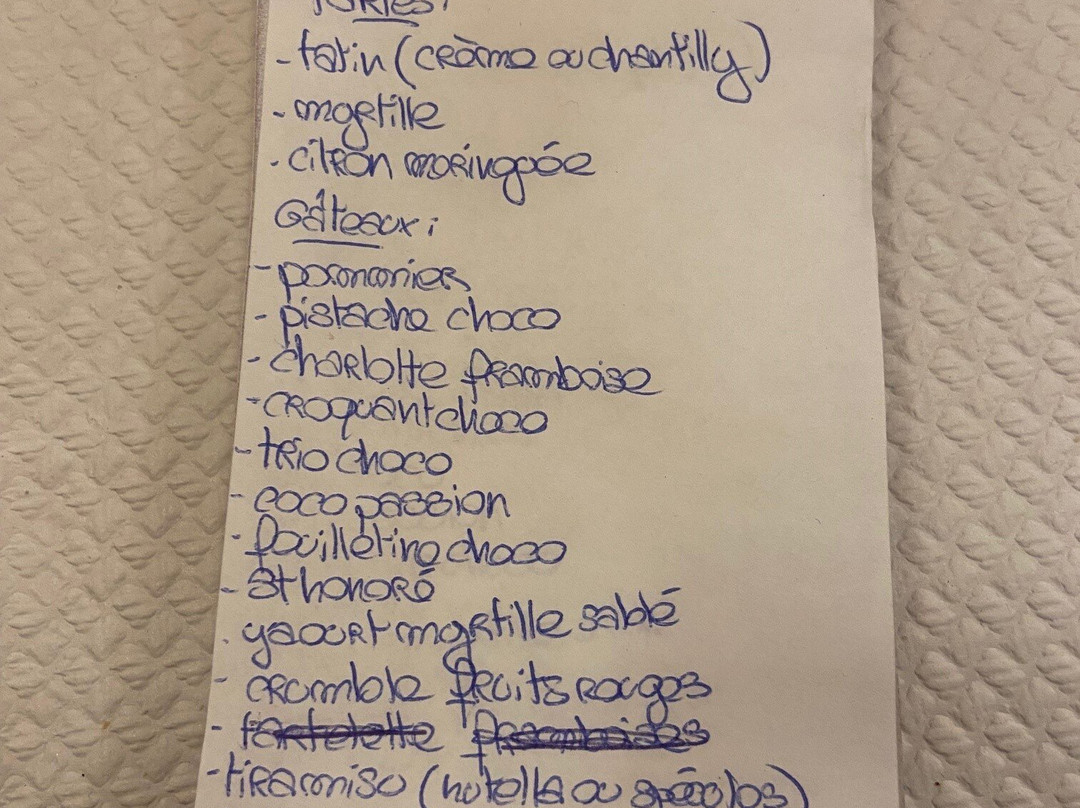 Tartes:
- tatin (crème ou chantilly)
- myrtille
- citron meringuée
Gâteaux:
- pommier
- pistache choco
- charlotte framboise
- croquant choco
- trio choco
- coco passion
- feuilletine choco
- St honoré
- yaourt myrtille sablé
- crumble fruits rouges
- tartelette framboises
- tiramisu (nutella ou spéculos)